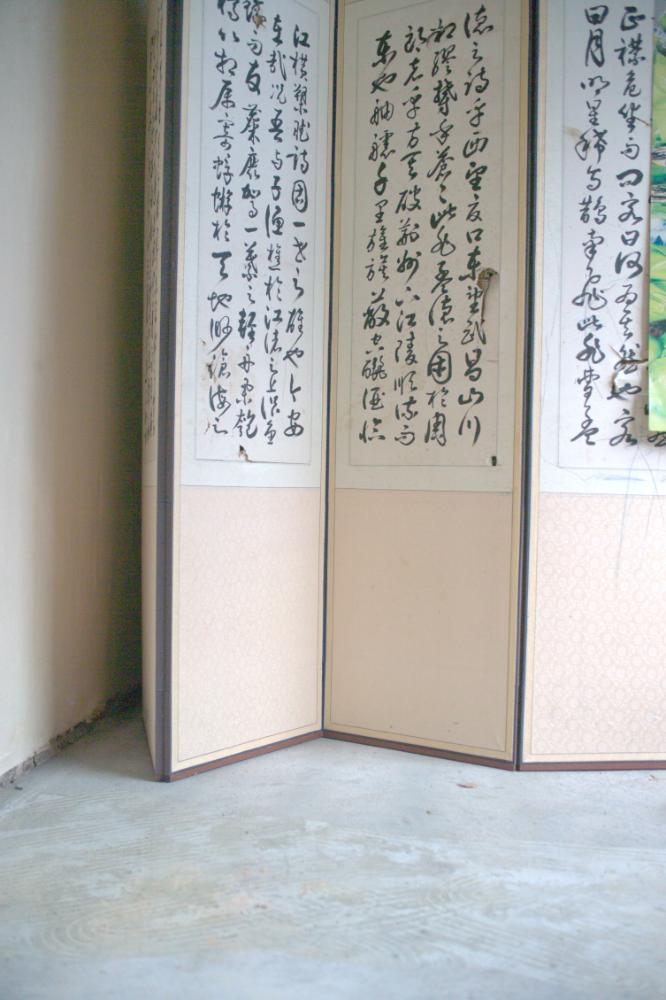 正襟危坐而問客曰何為其然也客
曰月明星稀烏鵲南飛此非曹孟
德之詩乎西望夏口東望武昌山川
相繆鬱乎蒼々此非孟德之困於周
郎者乎方其破荊州下江陵順流而
東也舳艫千里旌旗蔽空釃酒臨
江橫槊賦詩固一世之雄也今安
在哉況吾與子漁樵於江渚之上侶魚
蝦而友麋鹿駕一葉之輕舟舉匏
樽以相屬寄蜉蝣於天地渺滄海之